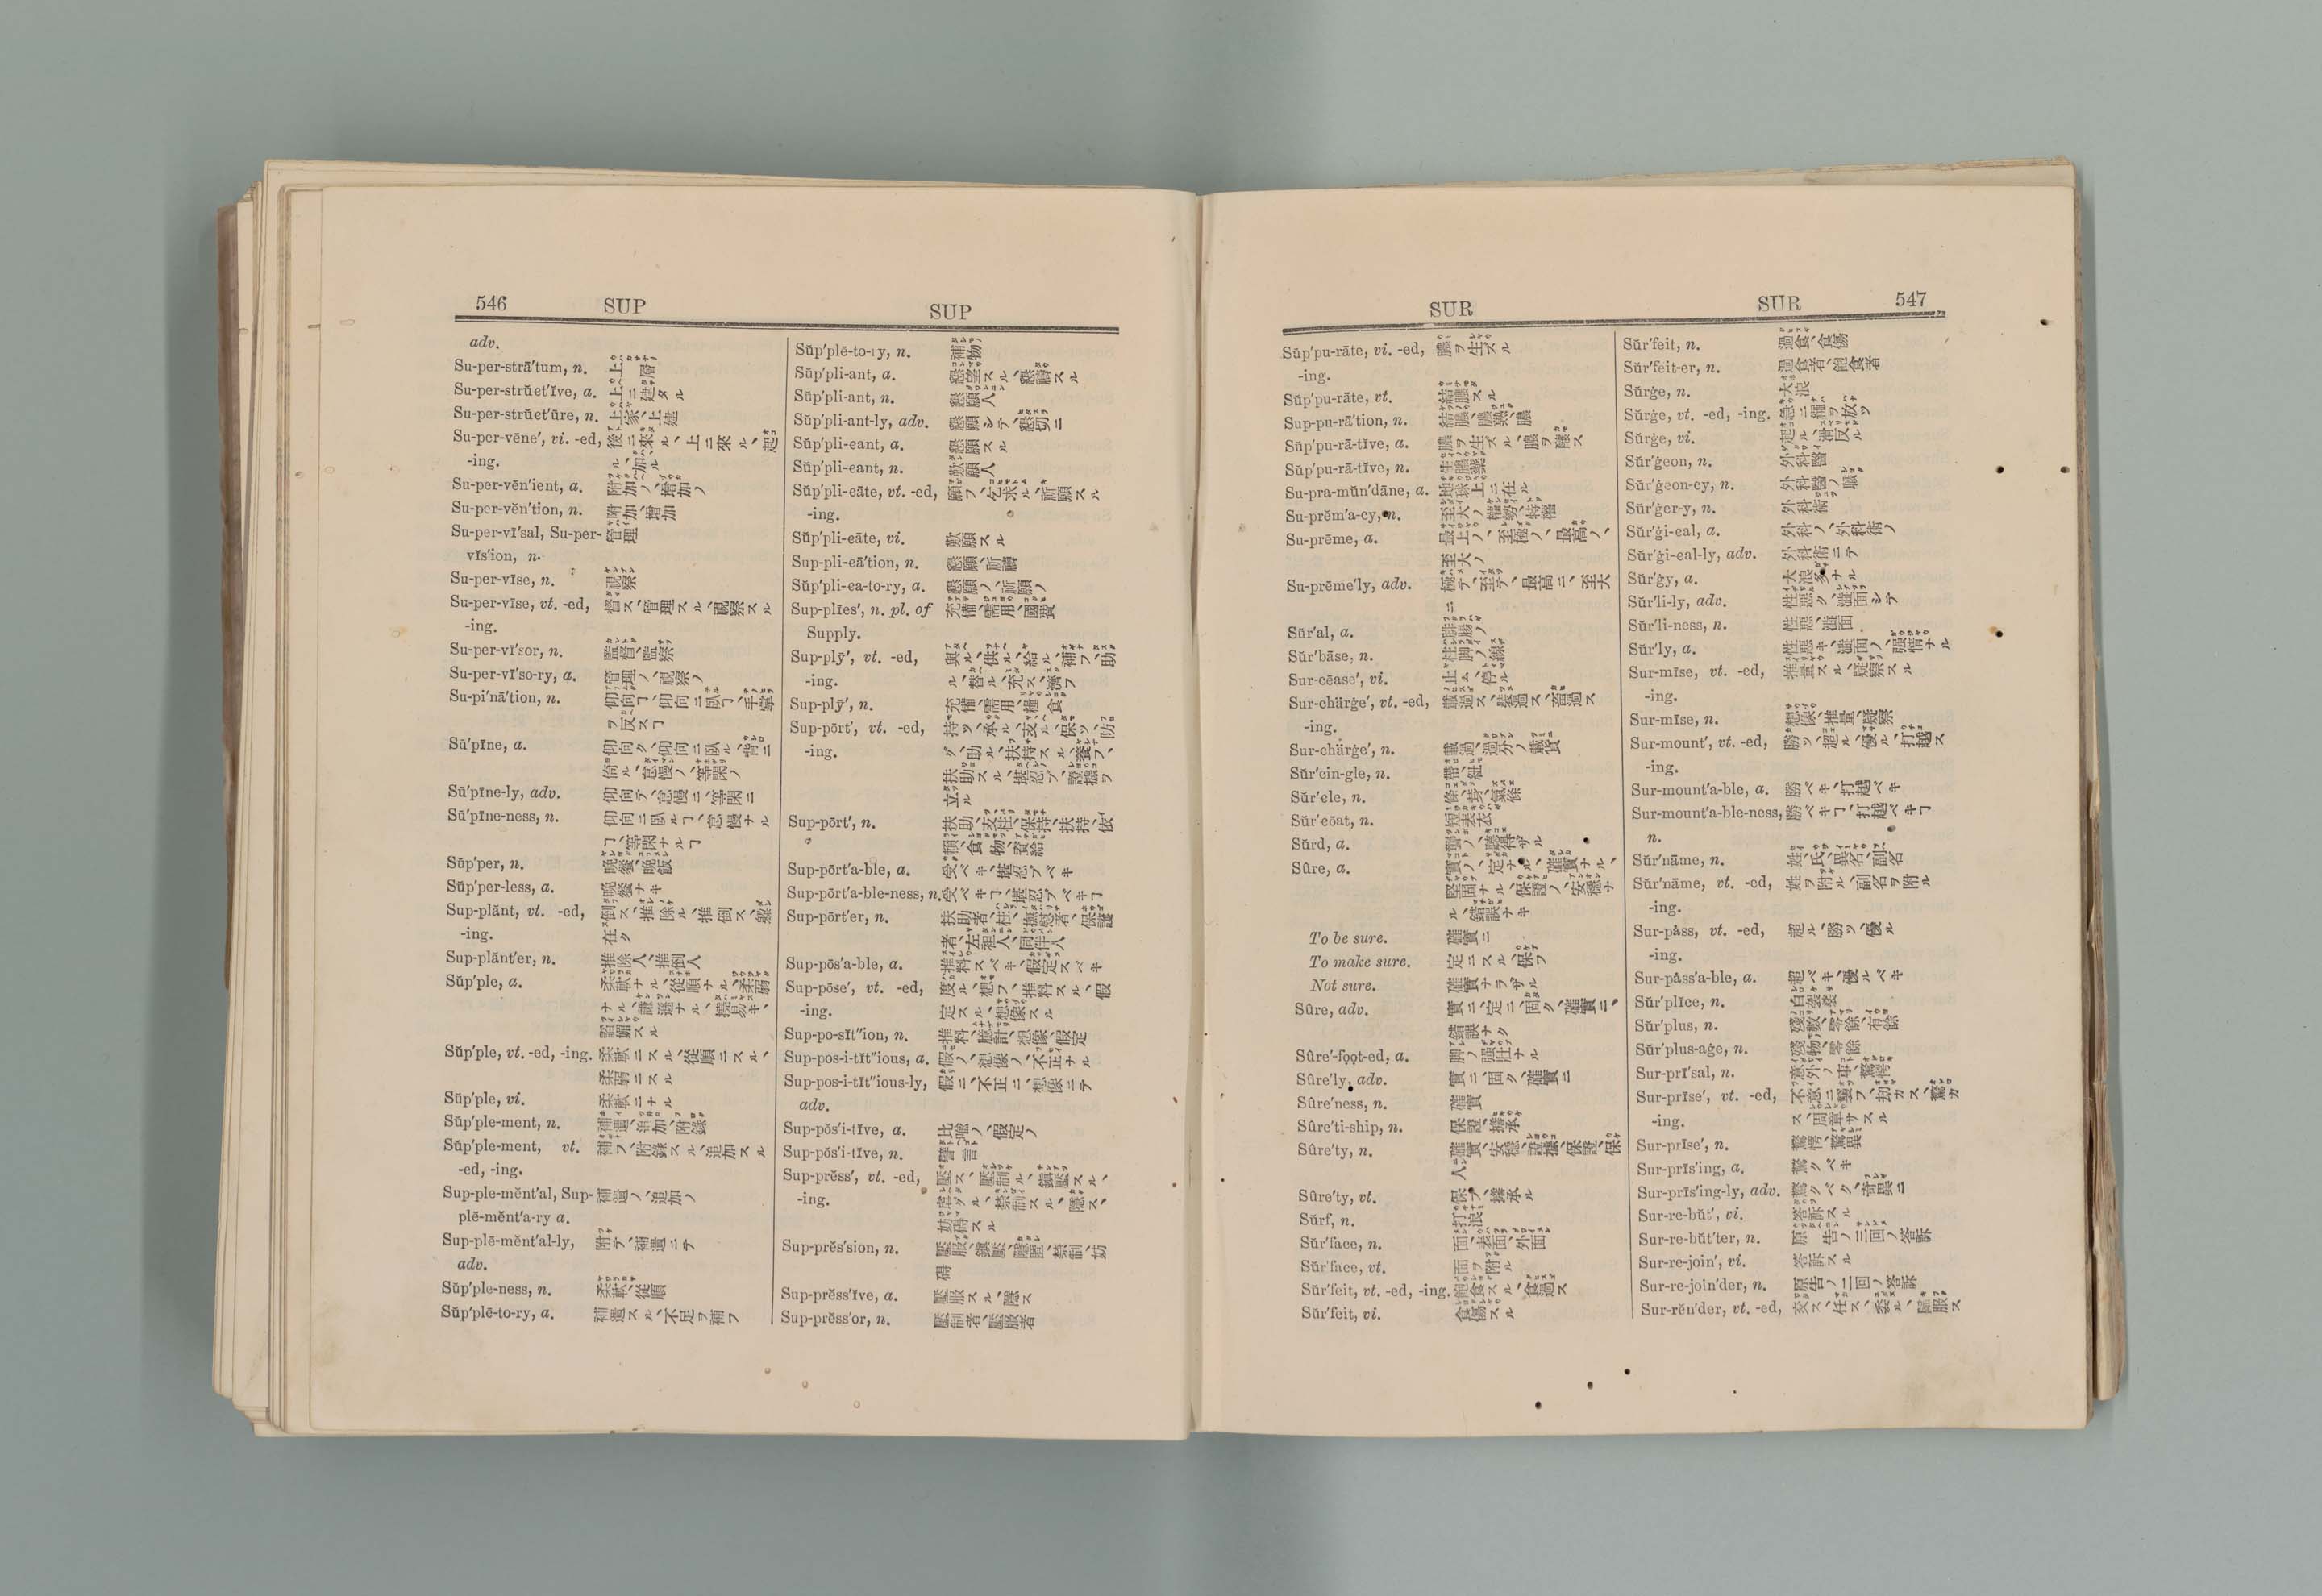 546 SUP SUP
adv.
Su-per-strā′tum, n. 上層
Su-per-strŭct′īve, a. 上ニ建タル
Su-per-strŭct′ūre, n. 上家、上建
Su-per-vēne′, vi. -ed, 後ニ來ル、上ニ來ル、起
-ing. ル、加ハル
Su-per-vēn′ient, a. 附加ノ、増加ノ
Su-per-vĕn′tion, n. 附加、増加
Su-per-vī′sal, Su-per- 管理
vĭs′ion, n.
Su-per-vīse, n. 視察
Su-per-vīse, vt. -ed, 督ス、管理スル、視察スル
-ing.
Su-per-vī′sor, n. 監督、監察
Su-per-vī′so-ry, a. 管理ノ、視察ノ
Su-pi′nā′tion, n. 仰向ヿ、仰向ニ臥ルヿ、手掌
ヲ反スヿ
Sū′pīne, a. 仰向ク、仰向ニ臥ル、背ニ
倚ル、怠慢ノ、等閑ノ
Sū′pīne-ly, adv. 仰向テ、怠慢ニ、等閑ニ
Sū′pīne-ness, n. 仰向ニ臥ルヿ、怠慢ナル
ヿ、等閑ナルヿ
Sŭp′per, n. 晩餐、晩飯
Sŭp′per-less, a. 晩餐ナキ
Sup-plănt, vt. -ed, 倒ス、推除ル、推倒ス
-ing.
Sup-plănt′er, n. 推除人、推倒人
Sŭp′ple, a. 柔軟ナル、從順ナル、柔弱
ナル、謙遜ナル、撓易キ、
諂媚スル
Sŭp′ple, vt. -ed, -ing. 柔軟ニスル、從順ニスル、
柔弱ニスル
Sŭp′ple, vi. 柔軟ニナル
Sŭp′ple-ment, n. 補遺、追加、附錄
Sŭp′ple-ment, vt. 補フ、附錄スル、追加スル
-ed, -ing.
Sup-ple-mĕnt′al, Sup- 補遺ノ、追加ノ
plē-mĕnt′a-ry a.
Sup-plē-mĕnt′al-ly, 附テ、補遺ニテ
adv.
Sŭp′ple-ness, n. 柔軟、從順
Sŭp′plē-to-ry, a. 補遺スル、不足ヲ補フ
Sŭp′plē-to-ry, n. 補物
Sŭp′pli-ant, a. 懇望スル、懇禱スル
Sŭp′pli-ant, n. 懇願人
Sŭp′pli-ant-ly, adv. 懇願シテ、懇切ニ
Sŭp′pli-eant, a. 懇願スル
Sŭp′pli-eant, n. 歎願人
Sŭp′pli-eāte, vt. -ed, 願フ、乞求ル、祈願スル
-ing.
Sŭp′pli-eāte, vi. 歎願スル
Sup-pli-eā′tion, n. 懇願、祈禱
Sŭp′pli-ea-to-ry, a. 懇願ノ、祈願ノ
Sup-plīes′, n. pl. of 充備、需用、國費
Supply.
Sup-plȳ′, vt. -ed, 與ル、供ル、給ル、補フ、助
-ing. ル、替ル、充ス、濟フ
Sup-plȳ′, n. 充備、需用、糧食
Sup-pōrt′, vt. -ed, 持ツ、承ル、支ル、保ツ、防
-ing. グ、助ル、扶持スル、養フ、
扶助スル、堪忍ブ、證據ヲ
立ル
Sup-pōrt′, n. 扶助、支柱、保持、扶持、依
頼、食物、賚給
Sup-pōrt′a-ble, a. 受ベキ、堪忍ブベキ
Sup-pōrt′a-ble-ness, n. 受ベキヿ、堪忍ブベキヿ
Sup-pōrt′er, n. 扶助者、柱、撫慰者、保護
者、左袒人、同伴人
Sup-pōs′a-ble, a. 推料スベキ、假定スベキ
Sup-pōse′, vt. -ed, 度ル、想フ、推料スル、假
-ing. 定スル、想像スル
Sup-po-sĭt″ion, n. 推料、臆計、想像、假定
Sup-pos-i-tĭt″ious, a. 假ノ、想像ノ、不正ナル
Sup-pos-i-tĭt″ious-ly, 假ニ、不正ニ、想像ニテ
adv.
Sup-pŏs′i-tĭve, a. 比喩ノ、假定ノ
Sup-pŏs′i-tĭve, n. 譬言
Sup-prĕss′, vt. -ed, 壓ス、壓制ル、鎭壓スル、
-ing. 虐グル、禁制スル、隱ス、
妨碍スル
Sup-prĕs′sion, n. 壓服、鎭壓、隱匿、禁制、妨
碍
Sup-prĕss′ĭve, a. 壓服スル、隱ス
Sup-prĕss′or, n. 壓制者、壓服者
SUR SUR 547
Sŭp′pu-rāte, vi. -ed, 膿ヲ生ズル
-ing.
Sŭp′pu-rāte, vt. 結膿スル
Sup-pu-rā′tion, n. 結膿、膿熟、膿
Sŭp′pu-rā-tĭve, a. 膿ヲ生ズル、膿ヲ釀ス
Sŭp′pu-rā-tĭve, n. 生膿藥
Su-pra-mŭn′dāne, a. 地球上ニ在ル
Su-prĕm′a-cy, n. 至大ノ權勢、特權
Su-prēme, a. 最上ノ、至極ノ、最高ノ、
至大ノ
Su-prēme′ly, adv. 極テ、至テ、最高ニ、至大
ニ
Sūr′al, a. 腓腸ノ
Sŭr′bāse, n. 柱脚ノ線
Sur-cēase′, vi. 止ム、停ル
Sur-chärġe′, vt. -ed, 載過ス、裝過ス、畜過ス
-ing.
Sur-chärġe′, n. 載過、過分ノ載貨
Sŭr′cin-gle, n. 帶、紐
Sŭr′ele, n. 條、芽、氣條
Sŭr′eōat, n. 短表衣
Sŭrd, a. 聾ノ、聽得ザル
Sûre, a. 實ノ、定ナル、確實ナル、
堅固ナル、保證ノ、安穩ナ
ル、錯誤ナキ
To be sure. 確實ニ
To make sure. 定ニスル、保フ
Not sure. 確實ナラザル
Sûre, adv. 實ニ、定ニ、固ク、確實ニ、
錯誤ナク
Sûre′-fo͝ot-ed, a. 脚ノ强壯ナル
Sûre′ly, adv. 實ニ、固ク、確實ニ
Sûre′ness, n. 確實
Sûre′ti-ship, n. 保證、擔承
Sûre′ty, n. 確實、安穩、證據、保證、保
人
Sûre′ty, vt. 保フ、擔承ル
Sûrf, n. 打浪
Sŭr′face, n. 面、表面、外面
Sŭr′face, vt. 面ヲ附ル
Sŭr′feit, vt. -ed, -ing. 飽食スル、食過ス
Sŭr′feit, vi. 食傷スル
Sŭr′feit, n. 過食、食傷
Sŭr′feit-er, n. 過食者、飽食者
Sŭrġe, n. 大浪
Sŭrġe, vt. -ed, -ing. 急ニ繩ヲ放ツ
Sŭrġe, vi. 起ル、滑反ル
Sŭr′ġeon, n. 外科醫
Sŭr′ġeon-cy, n. 外科醫ノ職
Sŭr′ġer-y, n. 外科術
Sŭr′ġi-eal, a. 外科ノ、外科術ノ
Sŭr′ġi-eal-ly, adv. 外科術ニテ
Sŭr′ġy, a. 大浪多ナル
Sŭr′li-ly, adv. 性惡ク、澁面シテ
Sŭr′li-ness, n. 性惡、澁面
Sŭr′ly, a. 性惡キ、澁面ノ、强情ナル
Sur-mīse, vt. -ed, 推量スル、疑察スル
-ing.
Sur-mīse, n. 想像、推量、疑察
Sur-mount′, vt. -ed, 勝ツ、超ル、優ル、打越ス
-ing.
Sur-mount′a-ble, a. 勝ベキ、打越ベキ
Sur-mount′a-ble-ness, 勝ベキヿ、打越ベキヿ
n.
Sŭr′nāme, n. 姓、氏、異名、副名
Sŭr′nāme, vt. -ed, 姓ヲ附ル、副名ヲ附ル
-ing.
Sur-pȧss, vt. -ed, 超ル、勝ツ、優ル
-ing.
Sur-pȧss′a-ble, a. 超ベキ、優ルベキ
Sŭr′plĭce, n. 白袈裟
Sŭr′plus, n. 殘數、零餘、有餘
Sŭr′plus-aġe, n. 殘物、零餘
Sur-prī′sal, n. 意外ノ事、驚愕
Sur-prīse′, vt. -ed, 不意ニ襲フ、劫カス、驚カ
-ing. ス、周章サスル
Sur-prīse′, n. 驚愕、驚異
Sur-prīs′ing, a. 驚クベキ
Sur-prīs′ing-ly, adv. 驚クベク、奇異ニ
Sur-re-bŭt′, vi. 答訴スル
Sur-re-bŭt′ter, n. 原告ノ三回ノ答訴
Sur-re-join′, vi. 答訴スル
Sur-re-join′der, n. 原告ノ二回ノ答訴
Sur-rĕn′der, vt. -ed, 交ス、任ス、委ル、降服ス